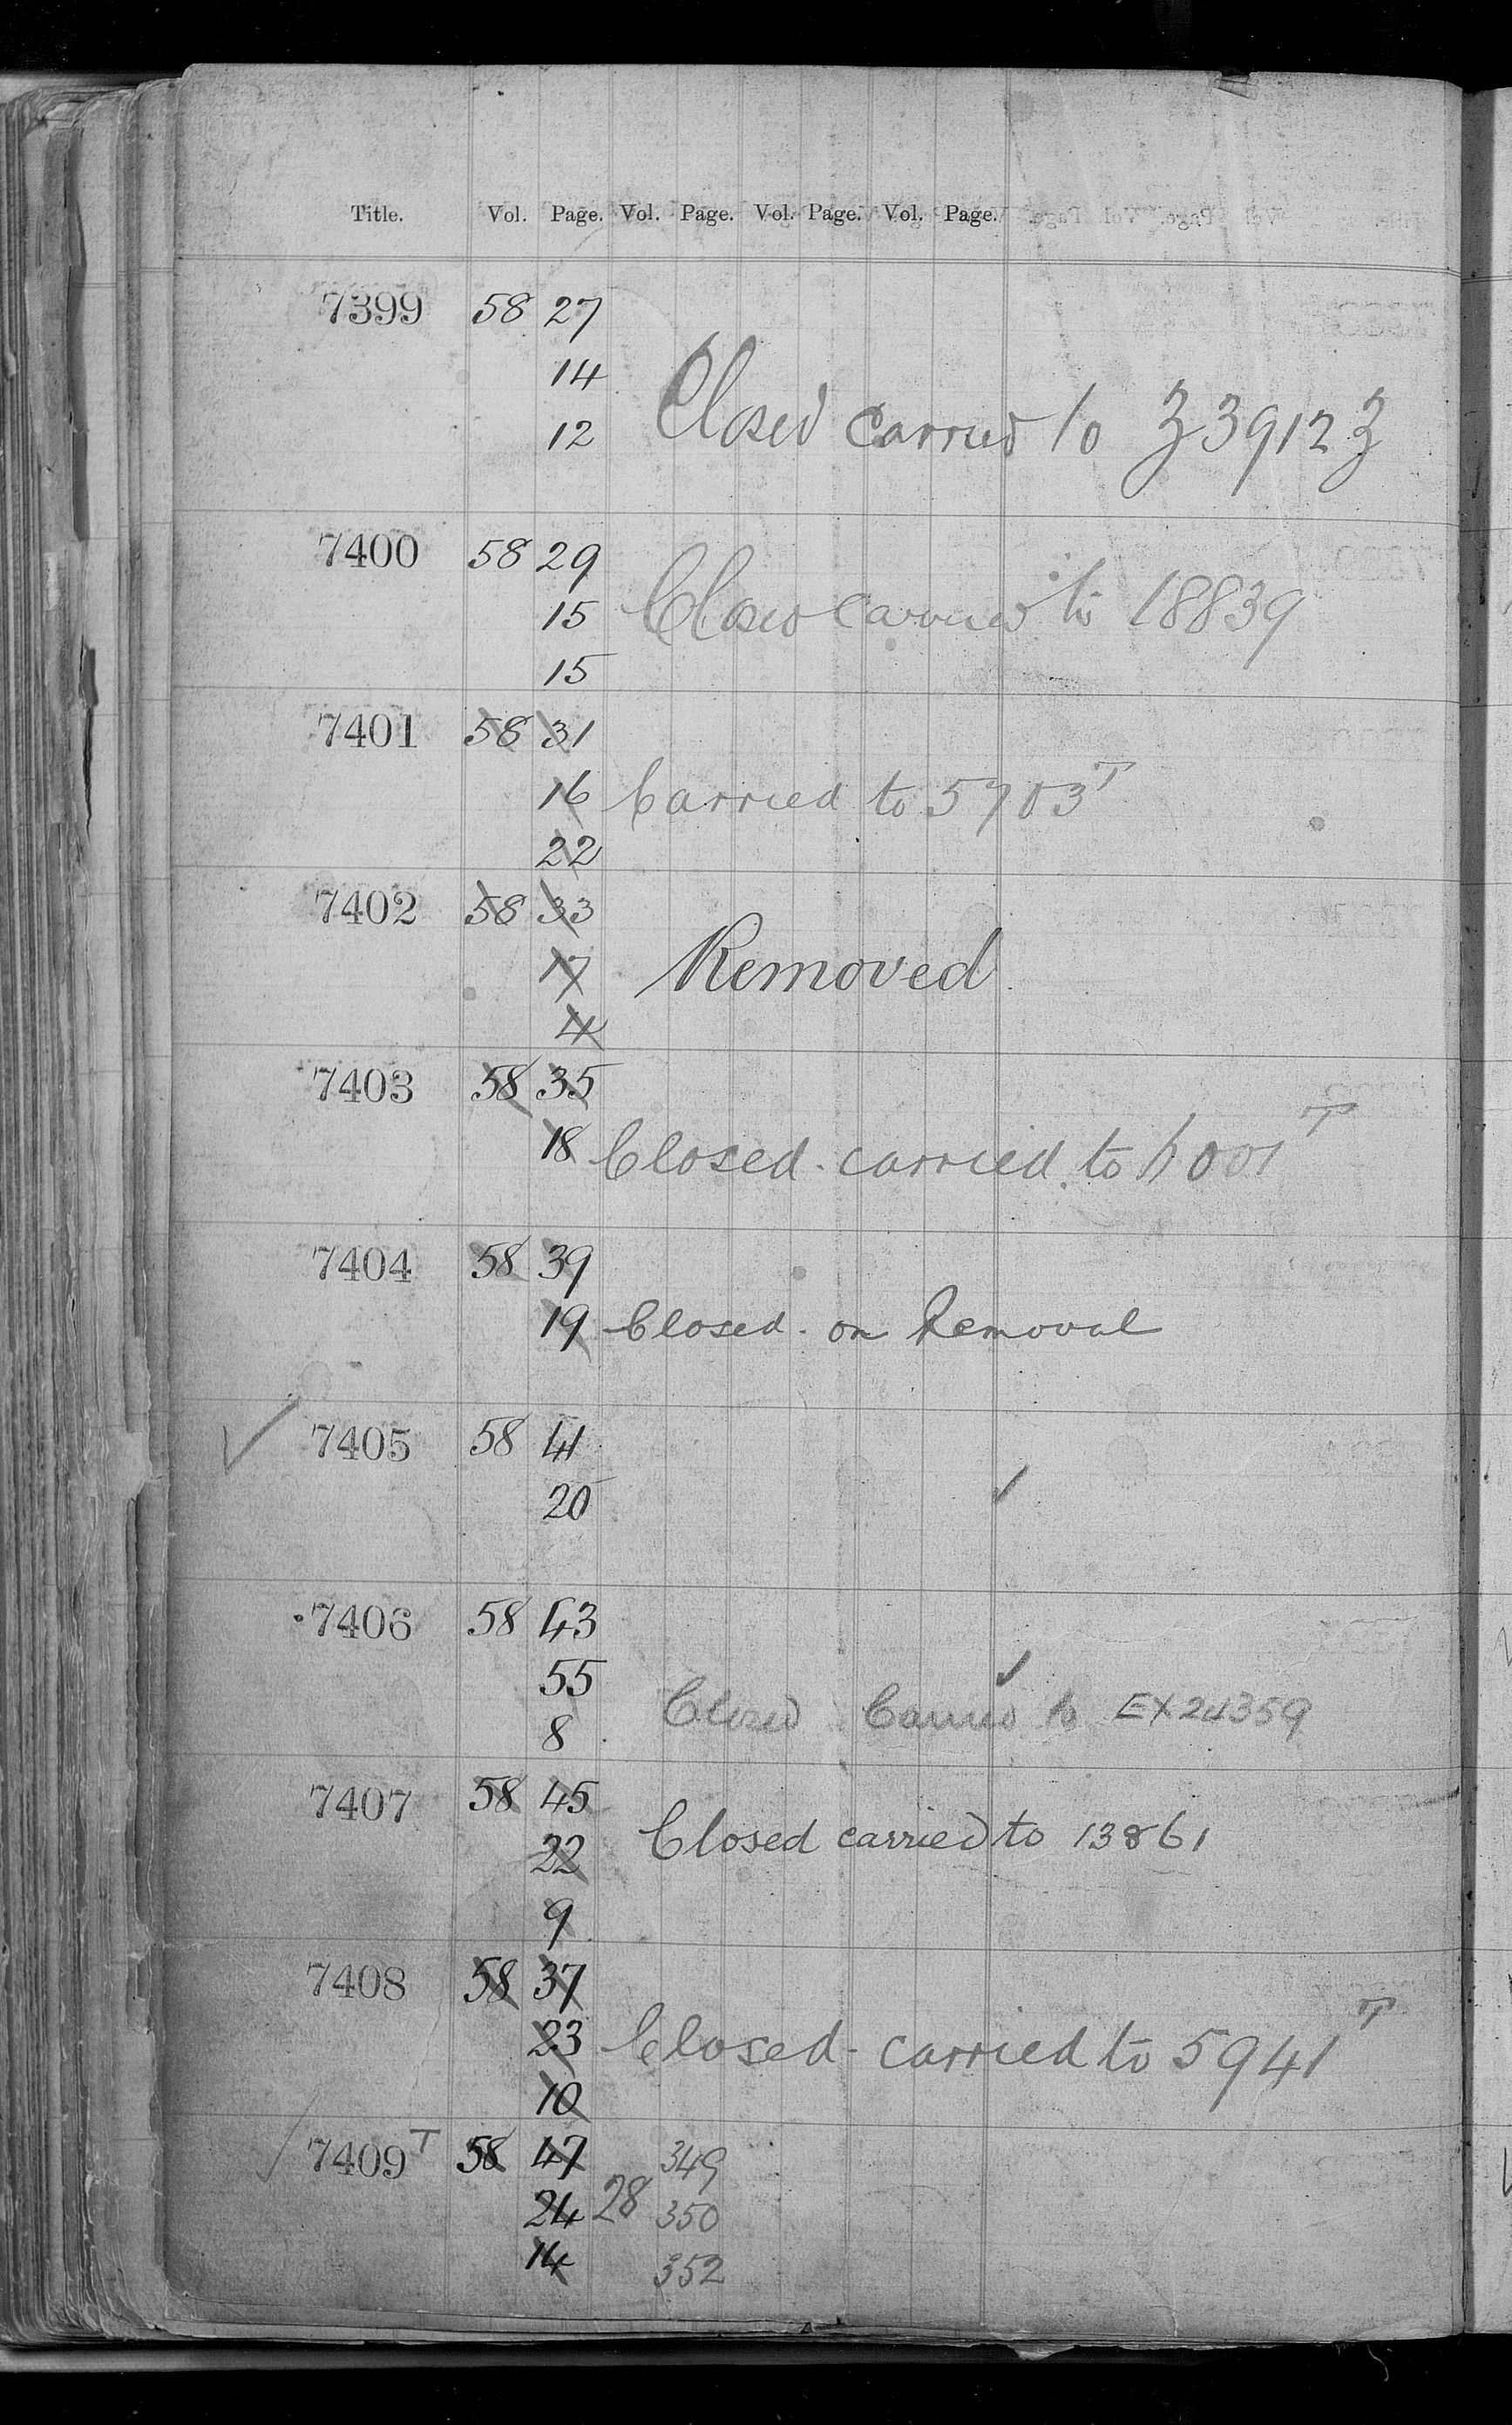 Title. Vol. Page. Vol. Page. Vol. Page. Vol. Page.
7399 58 27
14
12 Closed carried to Z3912Z
7400 58 29
15 Closed carried to 18839
15
7401 58 31
16 Carried to 5703T
22
7402 58 33
17 Removed
4
7403 58 35
18 Closed. carried to 6001T
7404 58 39
19 Closed. on Removal
✓ 7405 58 41
20 ✓
7406 58 43
55 ✓
8 Closed Carried to EX24359
7407 58 45
22 Closed carried to 13861
9
7408 58 37
23 Closed - carried to 5941T
10
7409T 58 47 349
24 28 350
14 352